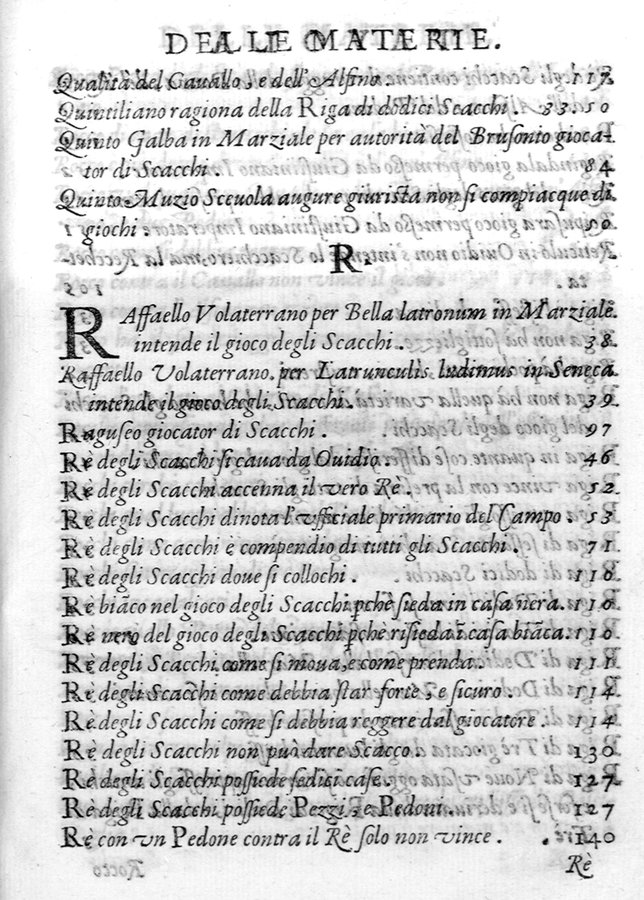 DELLE MATERIE.
Qualità del Cauallo, e dell'Alfino. 117
Quintiliano ragiona della Riga di dodici Scacchi. 33. 50
Quinto Galba in Marziale per autorità del Brusonio gioca-
tor di Scacchi. 84
Quinto Muzio Sceuola augure giurista non si compiacque di
giochi
R.
RAffaello Volaterrano per Bella latronum in Marziale
intende il gioco degli Scacchi. 38
Raffaello Volaterrano per Latrunculis ludimus in Seneca
intende il gioco degli Scacchi. 39
Raguseo giocator di Scacchi. 97
Rè degli Scacchi si caua da Ouidio. 46
Rè degli Scacchi accenna il vero Rè. 52
Rè degli Scacchi dinota l'vfficiale primario del Campo. 53
Rè degli Scacchi è compendio di tutti gli Scacchi. 71
Rè degli Scacchi doue si collochi. 110
Rè biãco nel gioco degli Scacchi pchè sieda in casa nera. 110
Rè nero del gioco degli Scacchi pchè risieda ĩ casa biãca. 110
Rè degli Scacchi come si moua, e come prenda. 111
Rè degli Scacchi come debbia star forte, e sicuro. 114
Rè degli Scacchi come si debbia reggere dal giocatore. 114
Rè degli Scacchi non può dare Scacco. 130
Rè degli Scacchi possiede sedici case. 127
Rè degli Scacchi possiede Pezzi, e Pedoni. 127
Rè con vn Pedone contra il Rè solo non vince. 140
Rè